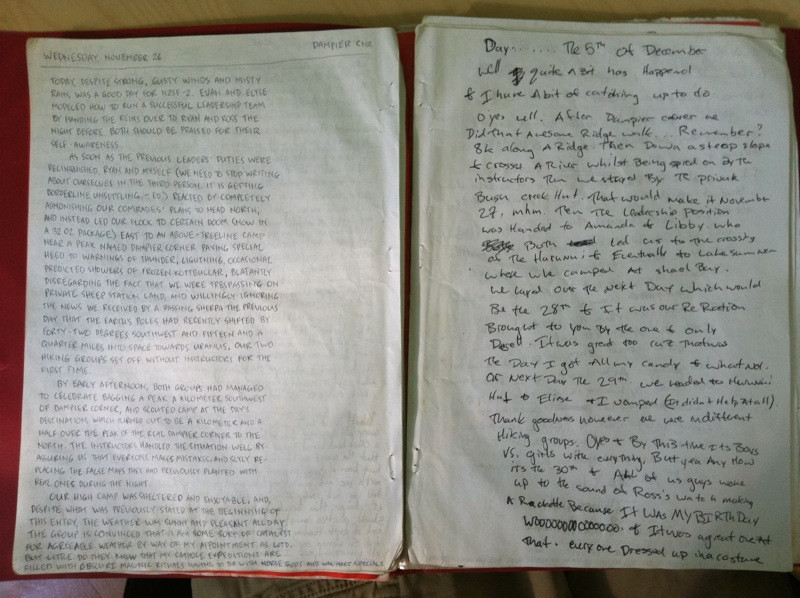 WEDNESDAY, NOVEMBER 26
DAMPIER CNR
TODAY, DESPITE STRONG, GUSTY WINDS AND MISTY
RAIN, WAS A GOOD DAY FOR NZSE-2. EVAN AND ELYSE
MODELED HOW TO RUN A SUCCESSFUL LEADERSHIP TEAM
BY HANDING THE REINS OVER TO RYAN AND ROSS THE
NIGHT BEFORE. BOTH SHOULD BE PRAISED FOR THEIR
SELF-AWARENESS.
AS SOON AS THE PREVIOUS LEADERS' DUTIES WERE
RELINQUISHED, RYAN AND MYSELF (WE NEED TO STOP WRITING
ABOUT OURSELVES IN THE THIRD PERSON. IT IS GETTING
BORDERLINE UNSETTLING. -ED.) REACTED BY COMPLETELY
ADMONISHING OUR COMRADES' PLANS TO HEAD NORTH,
AND INSTEAD LED OUR FLOCK TO CERTAIN DOOM (NOW IN
A 32 OZ PACKAGE) EAST TO AN ABOVE-TREELINE CAMP
NEAR A PEAK NAMED DAMPIER CORNER PAYING SPECIAL
HEED TO WARNINGS OF THUNDER, LIGHTNING, OCCASIONAL
PREDICTED SHOWERS OF FROZEN ROTTWEILLER, BLATANTLY
DISREGARDING THE FACT THAT WE WERE TRESPASSING ON
PRIVATE SHEEP STATION LAND, AND WILLINGLY IGNORING
THE NEWS WE RECEIVED BY A PASSING SHERPA THE PREVIOUS
DAY THAT THE EARTH'S POLES HAD RECENTLY SHIFTED BY
FORTY-TWO DEGREES SOUTHWEST AND FIFTEEN AND A
QUARTER MILES INTO SPACE TOWARDS URANUS, OUR TWO
HIKING GROUPS SET OFF WITHOUT INSTRUCTORS FOR THE
FIRST TIME.
BY EARLY AFTERNOON, BOTH GROUPS HAD MANAGED
TO CELEBRATE BAGGING A PEAK A KILOMETER SOUTHWEST
OF DAMPIER CORNER, AND SCOUTED CAMP AT THE DAY'S
DESTINATION, WHICH TURNED OUT TO BE A KILOMETER AND A
HALF OVER THE PEAK OF THE REAL DAMPIER CORNER TO THE
NORTH. THE INSTRUCTORS HANDLED THE SITUATION WELL BY
ASSURING US THAT EVERYONE MAKES MISTAKES, AND SLYLY RE-
PLACING THE FALSE MAPS THEY HAD PREVIOUSLY PLANTED WITH
REAL ONES DURING THE NIGHT.
OUR HIGH CAMP WAS SHELTERED AND ENJOYABLE, AND,
DESPITE WHAT WAS PREVIOUSLY STATED AT THE BEGINNING OF
THIS ENTRY, THE WEATHER WAS SUNNY AND PLEASANT ALL DAY.
THE GROUP IS CONVINCED THAT I AM SOME SORT OF CATALYST
FOR AGREEABLE WEATHER BY WAY OF MY APPOINTMENT AS LOTD.
BUT LITTLE DO THEY KNOW THAT MY CATHOLE EXPEDITIONS ARE
FILLED WITH OBSCURE MAGICAL RITUALS HAVING TO DO WITH NORSE GODS AND WAL-MART SPECIALS
Day...... The 5th of December
Well quite A bit has Happend
& I have A bit of catching up to do
O yes well. After Dampier corner we
Did that Awesome Ridge walk... Remember?
8k along A Ridge. Then Down a steep slope
& crossed A River whilst Being spied on By the
instructors Then we stayed By The private
Bush creek Hut. That would make it November
27, mhm. Then The Leadership position
was Handed to Amanda & Libby who
Both Led us to the crossing
of The Hurunui & Eventually to Lake Sumner
where we camped At shoal Bay.
We layed over The Next Day which would
Be the 28th & It was our Re Ration
Brought to you By the one & only
It was great too cuz that was
The Day I got All my candy & what Not.
Or Next Day The 29th we headed to Hurunui
Hut & Elise & I vomped (It didn't Help At all).
Thank goodness however we are in different
Hiking groups. Oyes & By This time Its Boys
Vs. girls with everything. But yea Any How
its the 30th & All of us guys woke
up to the sound of Ross's watch making
A Rackette Because IT WAS MY BIRTHDAY
Woooooooooooooo. & It was agreed on At
That. everyone Dressed up in a costume